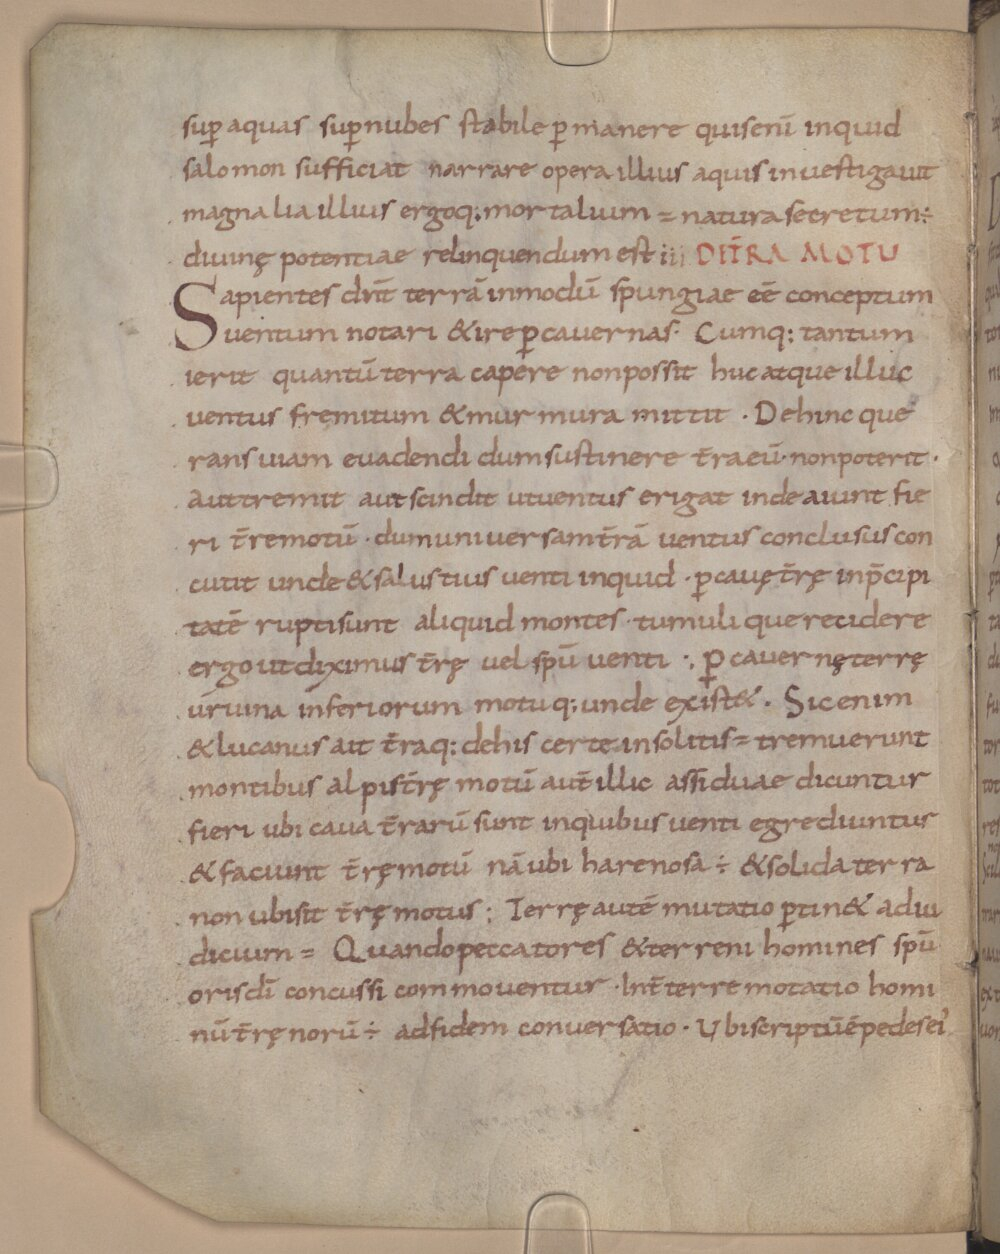 sup̄ aquas sup̄ nubes stabile p̄manere quisenī inquid
salomon sufficiat narrare opera illius aquis investigavit
magnalia illius ergoq; mortalium = natura secretum ÷
divinę potentiae relinquendum est iii DE TR̄RA MOTU
Sapientes dn̄t terrā inmodū spungiae eē conceptum
ventum notari & ire p̄ cavernas· Cumq: tantum
ierit quantū terra capere nonpossit huc atque illuc
ventus fremitum & murmura mittit · Dehinc que
rans viam evadendi dum sustinere tr̄a eū· nonpoterit·
aut tremit aut scindit ut ventus erigat inde aiunt fie
ri tr̄remotū · dum universam tr̄rā ventus conclusus con
cutit unde & salustius venti inquid · p̄ cavę tr̄rę inp̄cipi
tatē rupti sunt aliquid montes · tumulique recidere
ergo ut diximus tr̄rę vel spū venti ·, p̄ cavernę terrę
ur̄ uina inferiorum motuq; unde exist& · Sic enim
& lucanus ait tr̄raq: de his certę insolitis = tremuerunt
montibus alpis tr̄rę motū aut̄ illic assiduae dicuntur
fieri ubi cava tr̄rarū sunt inquibus venti egrediuntur
& faciunt tr̄rę motū nā ubi harenosa ÷ & solida terra
non ubi sit tr̄rę motus ; Terrę autē mutatio p̄tin& ad iu
dicium = Quando peccatores & terreni homines spū
oris dī concussi commoventur · Int̄ terre motatio homi
nū tr̄rę norū ÷ ad fidem conversatio · Ubi scriptū ē pedes ei'